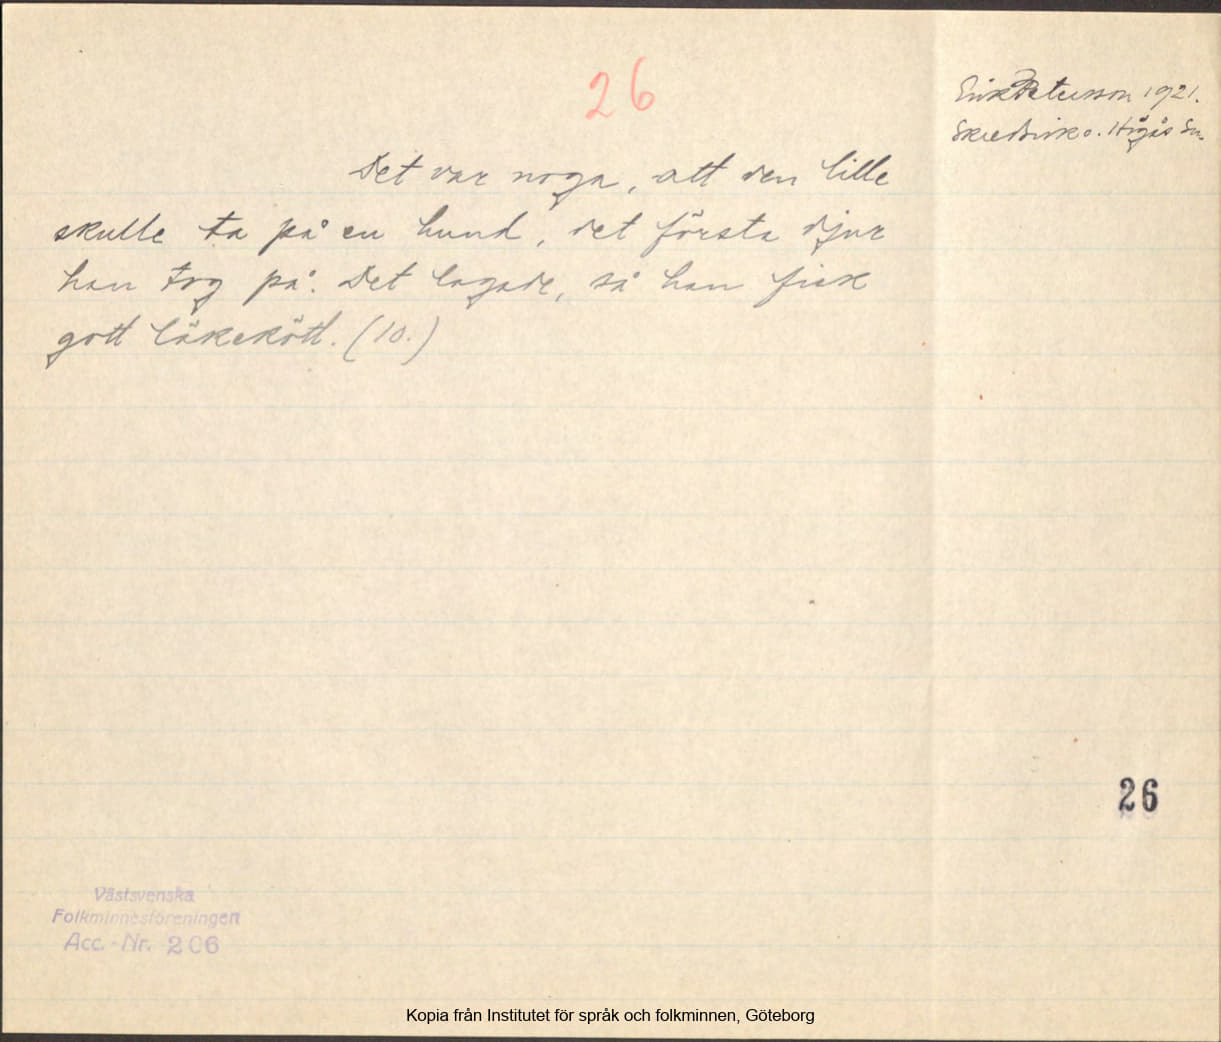 26
Erik Petersson 1921.
Skredsvik o. Högås Sn.
Det var noga, att den lille
skulle ta på en hund, det första djur
han tog på. Det lagade, så han fick
gott läkekött. (10.)
26
Västsvenska
Folkminnesföreningen
Acc.-Nr. 206
Kopia från Institutet för språk och folkminnen, Göteborg